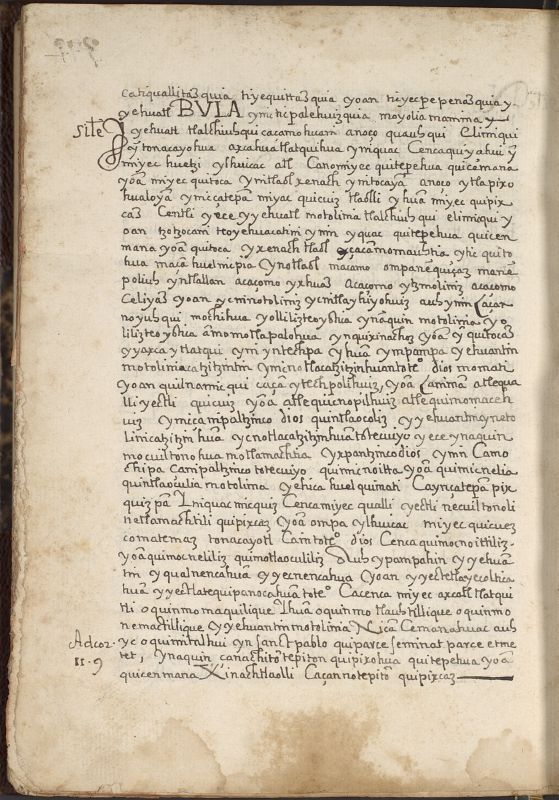 ca tiquallitas quia tiyequittas quia yoan tiyecpepenas quia y
yehuatl BVLA ynic tipalehuiz quia moyolia mamma y
site
iyehuatl tlalchiuhqui cacamo huam anoço quauhqui Elimiqui
ey tonacayohua axcahua tlatquihua yniquac Cenca quiyahui y
miyec huetzi ylhuicac atl Canomiyec quitepehua quicemana
yoã miyec quitoca ynitlaol xenach ynitocayã anoço ytlapixo
hualoyã ynicçatepã miyac quicuiz tlaolli yhuã miyec quipix
cas Centli yece yyehuatl motolinia tlalchiuhqui elimiqui y
oan tzotzocatin teoyehuacatin ynin yquac quitepehua quicen
mana yoã quitoca yxenach tlaol çacamomauhtia ythic quito
hua maçã huelnicpia ynotlaol macamo ompanequiças mane
polihu yntlallan acaçomo yxhuas Acaçomo ytzmoliniz acaçomo
Celiyas yoan ycninotoliniz ycnitlayhiyohuiz auh ynin Caçan
noyuhqui mochihua yollilizteoyhtia ynaquin motolinia yo
lilizteoyhtia amomotlapalohua ynquixinachos yoã yquitocas
yyaxca ytlatqui yni yntechpa yhuã ympampa yehuantin
motoliniacatzitzintin yn icnotlacatzitzinhuan tote dios momati
yoan quilnamicqui caçã ytech polihuiz, yoã Canimã atle qua
lli yectli quicuiz yoã atle quicnopilhuiz atle quimomaceh
uiz ynicampaltzinco dios quintlaocoliz yyehuantin yneto
linicatzitzinhuã ycnotlacatzitzinhuã totecuiyo yece ynaquin
mocuiltonohua motlamachtia yxpantzinco dios ynin Camo
chipa campaltzinco totecuiyo quimicnoitta yoã quimicnelia
quintlaoculia motolinia yehica huel quimati Cayniçatepã pix
quiz pã Iniquac micquiz Cenca miyec qualli yectli necuiltonoli
netlamachtili quipixcas yoã ompa ylhuicac miyec quicuez
comatemaz tonacayotl Caintote dios Cenca quimocnoittiliz
yoã quimocneliliz quimotlaoculiliz Auh ypampahin yyehuã
tin yqualnencahuã yyecnencahua yoan yyectetlaycolticã
huã yyectlatequipanocahuã tote Cacenca miyec axcatl tlatqui
tli oquinmomaquilique Ihuã oquinmotlauhtillique oquinmo
nemactillique yyehuantin motolinia Nicã Cemanahuac auh
Ad cor. 
II. 9
yc oquimitalhui yn sanct pablo qui parce seminat parce et me
tet, ynaquin canachitõ tepiton quipixohua quitepehua yoã
quicenmana Xinachtlaolli Caçan no tepitõ quipixcaz